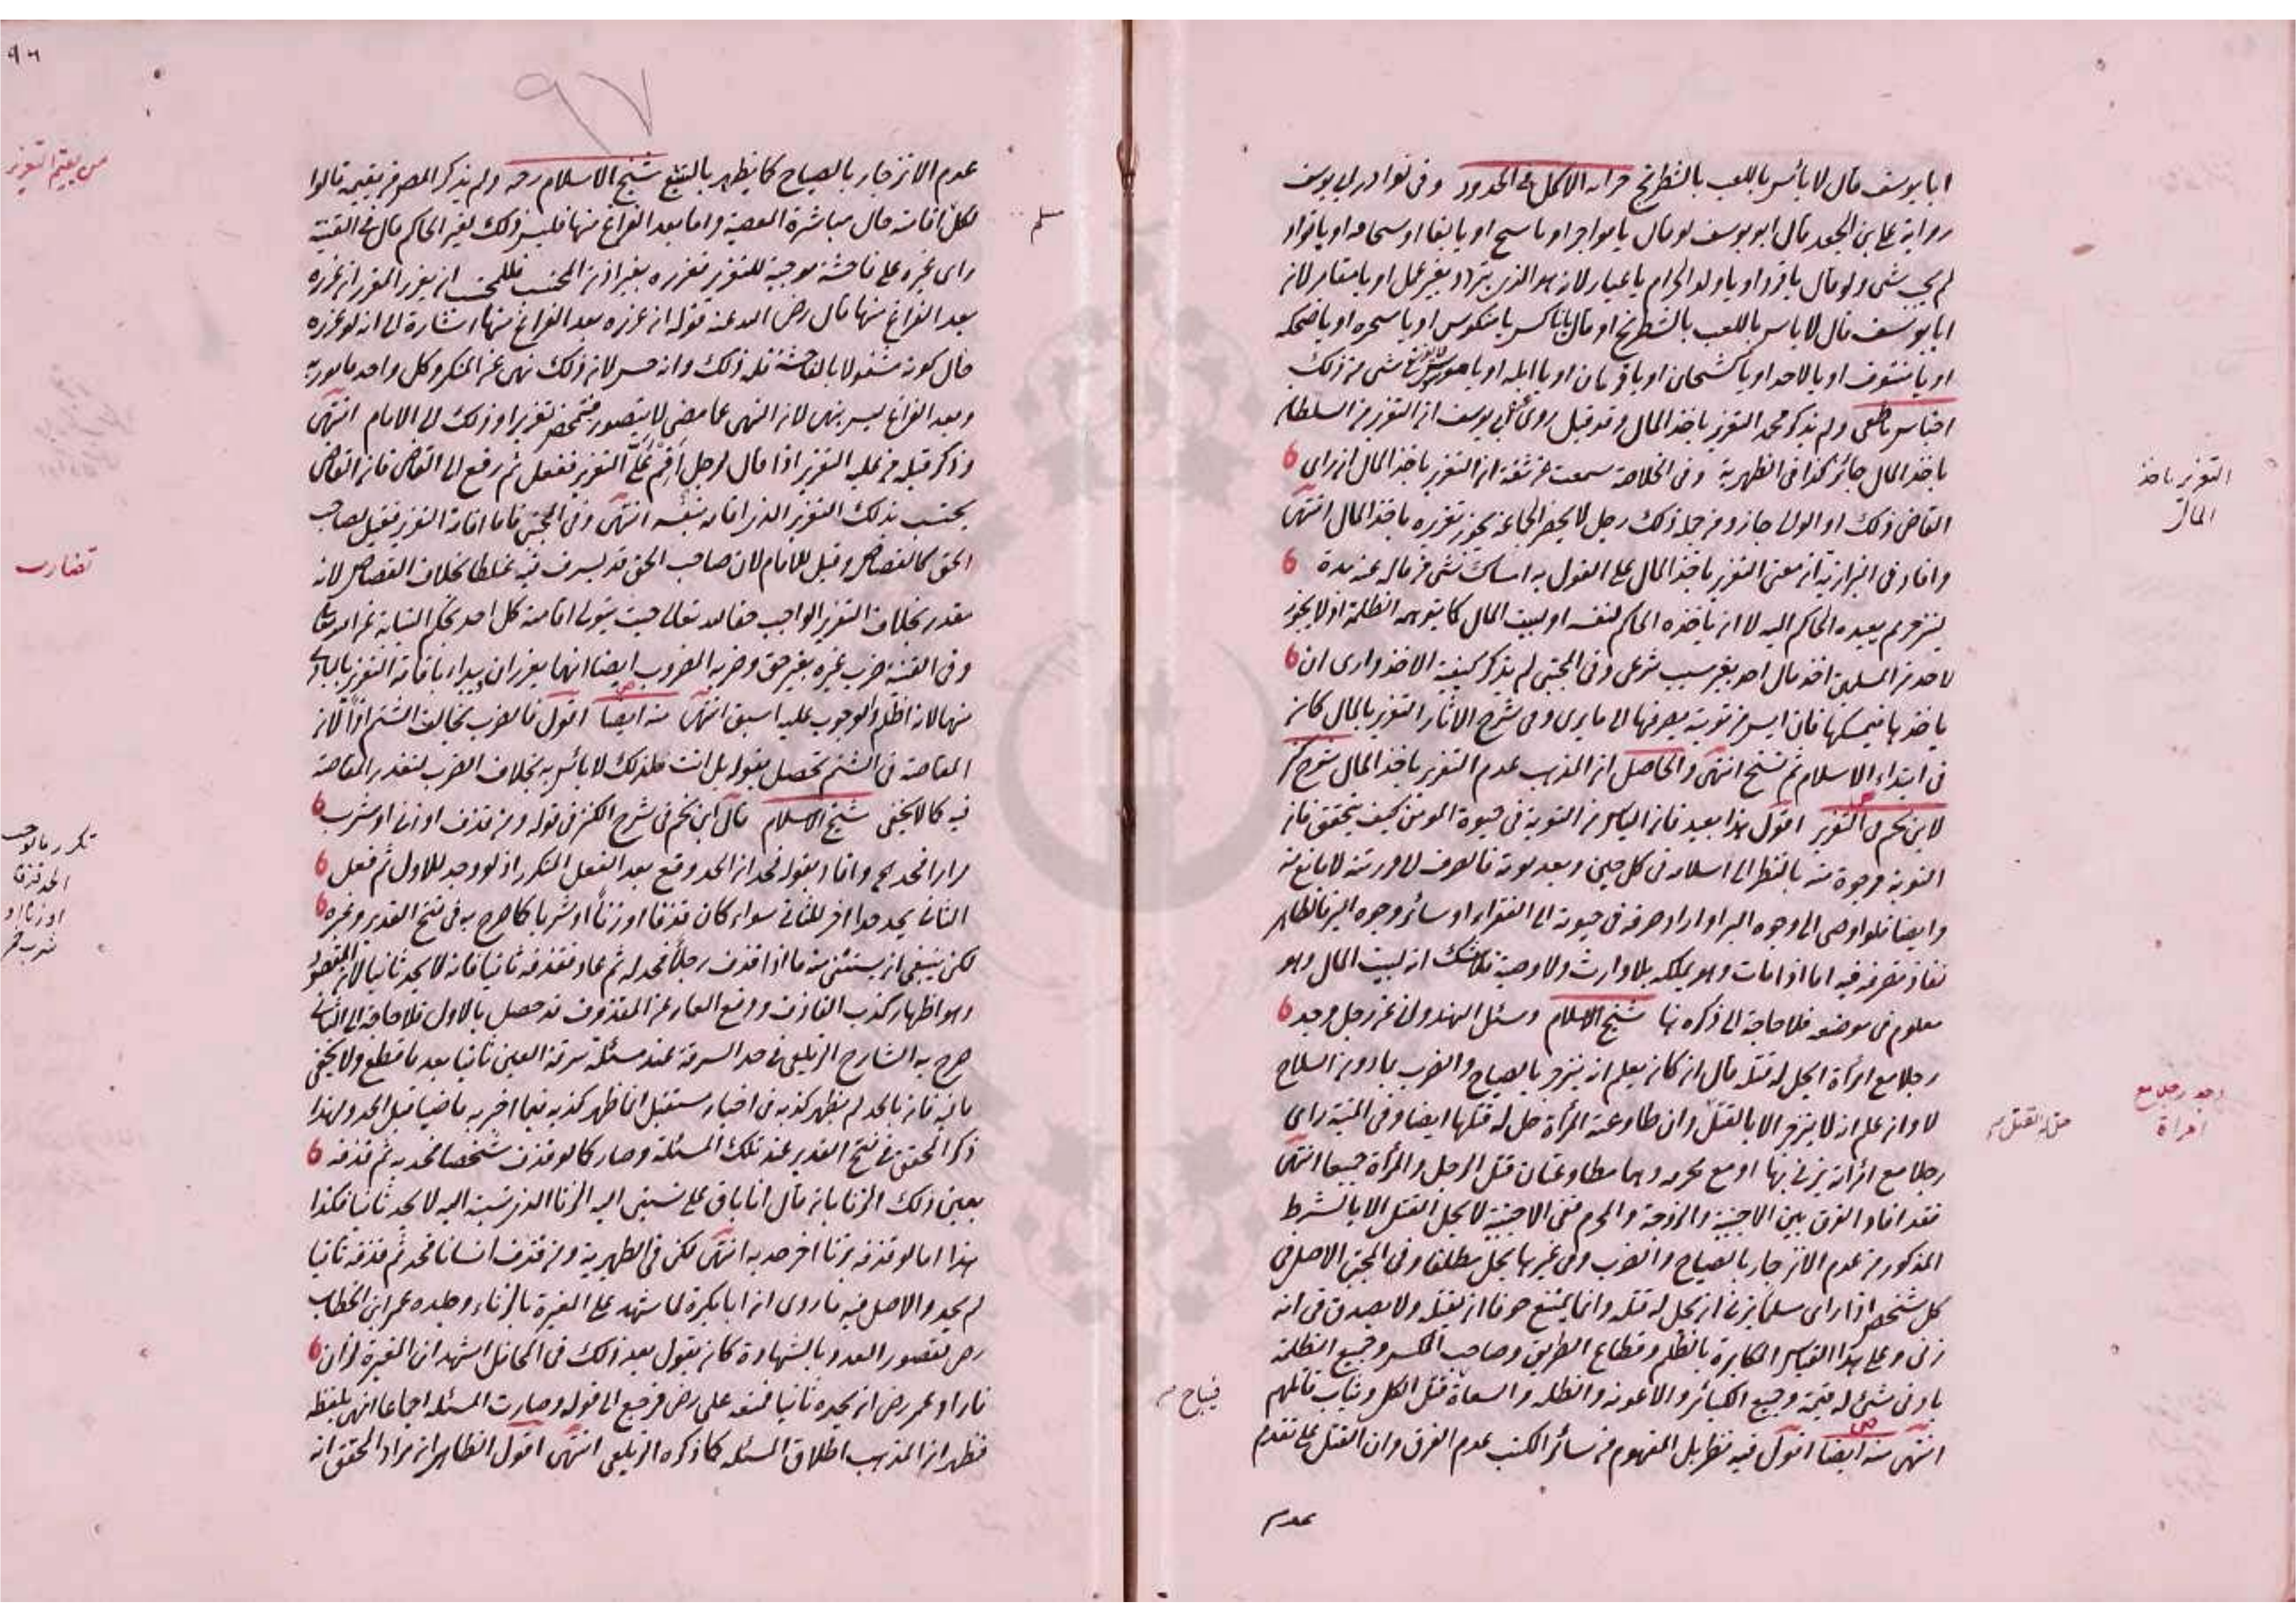 ابا يوسف قال لا بأس باللعب بالشطرنج خزانة الاكمل في الحدود وفى نوادر ابي يوسف
رواية علي بن الجعد قال ابو يوسف لو قال يا مواجر او يا او يا بغا او يا او يا قواد
لم يجب شى ولو قال يا قرد او يا ولد الحرام يا عيار لانه هو الذي يتردد بغير عمل او يا مقامر لان
ابا يوسف قال لا باس باللعب بالشطرنج او قال يا ناكس يا منكوس او يا سخره او يا ضحكه
او يا او يا او يا كشحان او يا قرنان او يا ابله او يا موسوس شى من ذلك
اجناس ناطفى ولم يذكر محمد التعزير باخذ المال وقد قيل روى عن ابي يوسف ان التعزير من السلطان
باخذ المال جائز كذا فى الظهيرية وفى الخلاصة سمعت من ثقة ان التعزير باخذ المال ان راى
القاضى ذلك او الوالي جاز ومن جملة ذلك رجل لا يحضر الجماعة يجوز تعزيره باخذ المال انتهى
وافاد فى البزازية ان معنى التعزير باخذ المال على القول به امساك شى من ماله عنه مدة
لينزجر ثم يعيده الحاكم اليه لا ان ياخذه الحاكم لنفسه او لبيت المال كما يتوهمه الظلمة اذ لا يجوز
لاحد من المسلمين اخذ مال احد بغير سبب شرعى وفى المجتبى لم يذكر كيفية الاخذ وارى ان
ياخذها فيمسكها فان ايس من توبته يصرفها الى ما يرى وفى شرح الاثار التعزير بالمال كان
فى ابتداء الاسلام ثم نسخ انتهى والحاصل ان المذهب عدم التعزير باخذ المال شرح كنز
لابن نجيم فى التعزير اقول هذا بعيد فان الياس من التوبة فى حيوة المومن كيف يتحقق فان
التوبة مرجوة منه بالنظر الى اسلامه فى كل حين وبعد موته فالصرف لورثته لا مانع منه
وايضا فلو اوصى الى وجوه البر او اراد صرفه فى حيوته الى الفقراء او سائر وجوه البر فالظاهر
نفاذ تصرفه فيه اما اذا مات وهو يملكه بلا وارث ولا وصية فلا شك انه لبيت المال وهو
معلوم فى موضعه فلا حاجة الى ذكره هنا شيخ الاسلام وسئل الهندواني عن رجل وجد
رجلا مع امرأة ايحل له قتله قال ان كان يعلم انه ينزجر بالصياح والضرب بما دون السلاح
لا وان علم انه لا ينزجر الا بالقتل وان طاوعته المرأة حل له قتلها ايضا وفى المنية راى
رجلا مع امرأته يزني بها او مع محرمه وهما مطاوعتان قتل الرجل والمرأة جميعا انتهى
فقد افاد الفرق بين الاجنبية والزوجة والمحرم ففى الاجنبية لا يحل القتل الا بالشرط
المذكور من عدم الانزجار بالصياح والضرب وفى غيرها يحل مطلقا وفى المجتبى الاصل فى
كل شخص اذا راى مسلما يزني ان يحل له قتله وانما يمتنع خوفا ان يقتله ولا يصدق فى انه
زنى وعلى هذا القياس المكابرة بالظلم وقطاع الطريق وصاحب المكس وجميع الظلمة
بادنى شئ له قيمة وجميع الكبائر والاعونة والظلمة والسعاة قتل الكل ويثاب قاتلهم
انتهى منه ايضا اقول فيه نظر بل المفهوم من سائر الكتب عدم الفرق وان القتل على تقدير
عدم
التعزير باخذ
المال
وجد رجلا مع
امراة
حل له القتل
فيباح
٩٦
٩٧
عدم الانزجار بالصياح كما يظهر بالتتبع شيخ الاسلام رحه ولم يذكر المص من يقيمه قالوا
لكل اقامته حال مباشرة المعصية واما بعد الفراغ منها فليس ذلك لغير الحاكم قال في القنية
راى غيره على فاحشة موجبة للتعزير فعزره بغير اذن المحتسب فللمحتسب ان يعزر المعزر ان عزره
بعد الفراغ منها قال رضى الله عنه قوله ان عزره بعد الفراغ منها اشارة الى انه لو عزره
حال كونه مشغولا بالفاحشة فله ذلك وانه حسن لان ذلك نهى عن المنكر وكل واحد مامور به
وبعد الفراغ ليس بنهى لان النهى عما مضى لا يتصور فتمحض تعزيرا وذلك الى الامام انتهى
وذكر قبله من عليه التعزير اذا قال لرجل اقم علي التعزير ففعل ثم رفع الى القاضى فان القاضى
يحتسب بذلك التعزير الذى اقامه بنفسه انتهى وفى المجتبى فاما اقامة التعزير فقيل لصاحب
الحق كالقصاص وقيل للامام لان صاحب الحق قد يسرف فيه غلطا بخلاف القصاص لانه
مقدر بخلاف التعزير الواجب حقا لله تعالى حيث يتولى اقامته كل احد بحكم النيابة عن الله تعالى
وفى القنية ضرب غيره بغير حق وضربه المضروب ايضا انهما يعزران ويبدا باقامة التعزير بالبادى
منهما لانه اظلم والوجوب عليه اسبق انتهى منه ايضا اقول فالضرب يخالف الشتم اذا لان
المقاصة فى الشتم تحصل بقوله بل انت فلذلك لا بأس به بخلاف الضرب لتعذر المقاصة
فيه كما لا يخفى شيخ الاسلام قال ابن نجيم فى شرح الكنز فى قوله ومن قذف او زنى او شرب
مرارا فحد الخ وافاد بقوله فحد ان الحد وقع بعد الفعل المتكرر اذ لو وجد للاول ثم فعل
الثانى يحد حدا اخر للثانى سواء كان قذفا او زنأ او شربا كما صرح به فى فتح القدير وغيره
لكن ينبغى ان يستثنى منه ما اذا قذف رجلا فحد له ثم عاد فقذفه ثانيا فانه لا يحد ثانيا لان المقصود
وهو اظهار كذب القاذف ودفع العار عن المقذوف قد حصل بالاول فلا حاجة الى الثانى
صرح به الشارح الزيلعى فى حد السرقة عند مسئلة سرقة العين ثانيا بعد ما قطع ولا يخفى
ما فيه فان بالحد لم يظهر كذبه فى اخبار مستقبل انما ظهر كذبه فيما اخبر به ماضيا قبل الحد ولهذا
ذكر المحقق فى فتح القدير عند تلك المسئلة وصار كما لو قذف شخصا فحد به ثم قذفه
بعين ذلك الزنا بان قال انا باق على نسبتى اليه الزنا الذى نسبته اليه لا يحد ثانيا فكذا
هذا اما لو قذفه بزنا اخر حد به انتهى لكن فى الظهيرية ومن قذف انسانا فحد ثم قذفه ثانيا
لم يحد والاصل فيه ما روى ان ابا بكرة لما شهد على المغيرة بالزناء وجلده عمر ابن الخطاب
رض لقصور العدد بالشهادة كان يقول بعد ذلك فى المحافل اشهد ان المغيرة لزان
فاراد عمر رض ان يحده ثانيا فمنعه على رض فرجع الى قوله وصارت المسئلة اجماعا انتهى بلفظه
فظهر ان المذهب اطلاق المسئله كما ذكره الزيلعى انتهى اقول الظاهر ان مراد المحقق انه
من يقيم التعزير
مسلم
تضارب
تكرر ما يوجب
الحد قذفا
او زنا او
شرب خمر